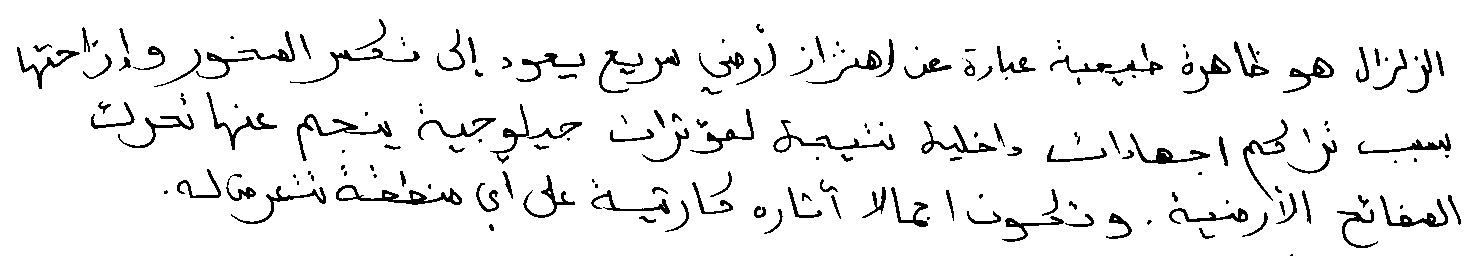 الزلزال هو ظاهرة طبيعية عبارة عن اهتزاز أرضي سريع يعود إلى تكسر الصخور وإزاحتها
بسبب تراكم اجهادات داخلية نتيجة لمؤثرات جيلوجية ينجم عنها تحرك
الصفائح الأرضية . وتكون اجمالا أثاره كارثية على أي منطقة تتعرض له .